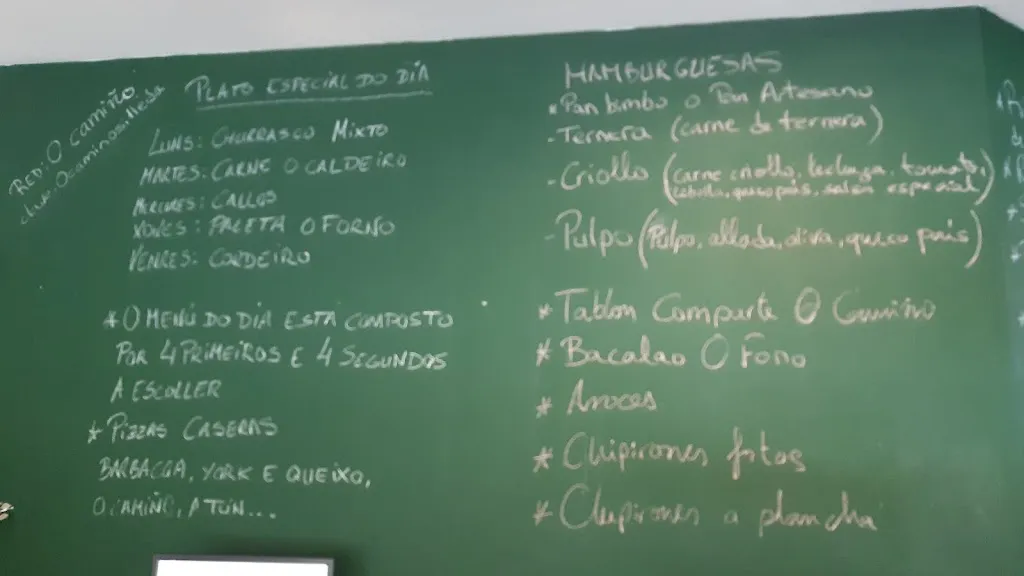 RED: O camiño
clue: Ocaminosmeda
PLATO ESPECIAL DO DÍA
LUNS: CHURRASCO MIXTO
MARTES: CARNE O CALDEIRO
MERCORES: CALLOS
XOVES: PALETA O FORNO
VENRES: CORDEIRO
* O MENÚ DO DÍA ESTA COMPOSTO
POR 4 PRIMEIROS E 4 SEGUNDOS
A ESCOLLER
* PIZZAS CASERAS
BARBACOA, YORK E QUEIXO,
O CAMIÑO, ATUN...
HAMBURGUESAS
• Pan bimbo o Pan Artesano
- Ternera (carne de ternera)
- Criollo (carne criollo, lechuga, tomate,
cebolla, queso país, salsa especial)
- Pulpo (Pulpo, allada, oliva, queco país)
* Tablon Comparte O Camiño
* Bacalao O Forno
* Arroces
* Chipirones fritos
* Chipirones a plancha